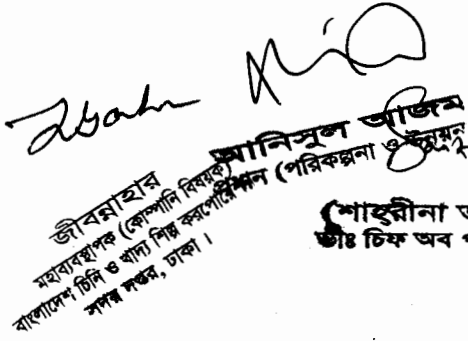 জীবন্নাহার
মহাব্যবস্থাপক (কোম্পানি বিষয়ক)
বাংলাদেশ চিনি ও খাদ্য শিল্প করপোরেশন
সদর দপ্তর, ঢাকা।
আনিসুল আজম
প্রধান (পরিকল্পনা ও উন্নয়ন
(শাহরীনা
ডিঃ চিফ অব